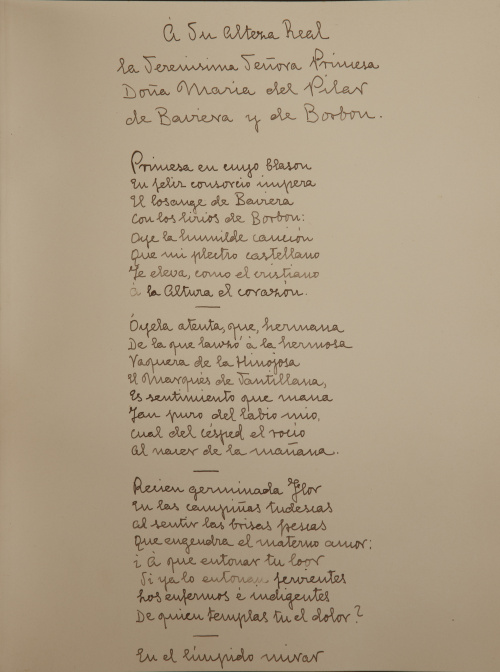 Á Su Alteza Real
la Serenisima Señora Princesa
Doña Maria del Pilar
de Baviera y de Borbon.
Princesa en cuyo blason
En feliz consorcio impera
El losange de Baviera
Con los lirios de Borbon:
Oye la humilde canción
Que mi plectro castellano
Te eleva, como el cristiano
á la Altura el corazón.
Óyela atenta, que, hermana
De la que lanzó á la hermosa
Vaquera de la Hinojosa
El Marqués de Santillana,
Es sentimiento que mana
Tan puro del labio mio,
cual del césped el rocío
Al nacer de la mañana.
Recien germinada Flor
En las campiñas tudescas
Al sentir las brisas frescas
Que engendra el materno amor:
¿Á que entonar tu loor
Si ya lo entonan fervientes
Los enfermos é indigentes
De quien templas tu el dolor?
En el límpido mirar